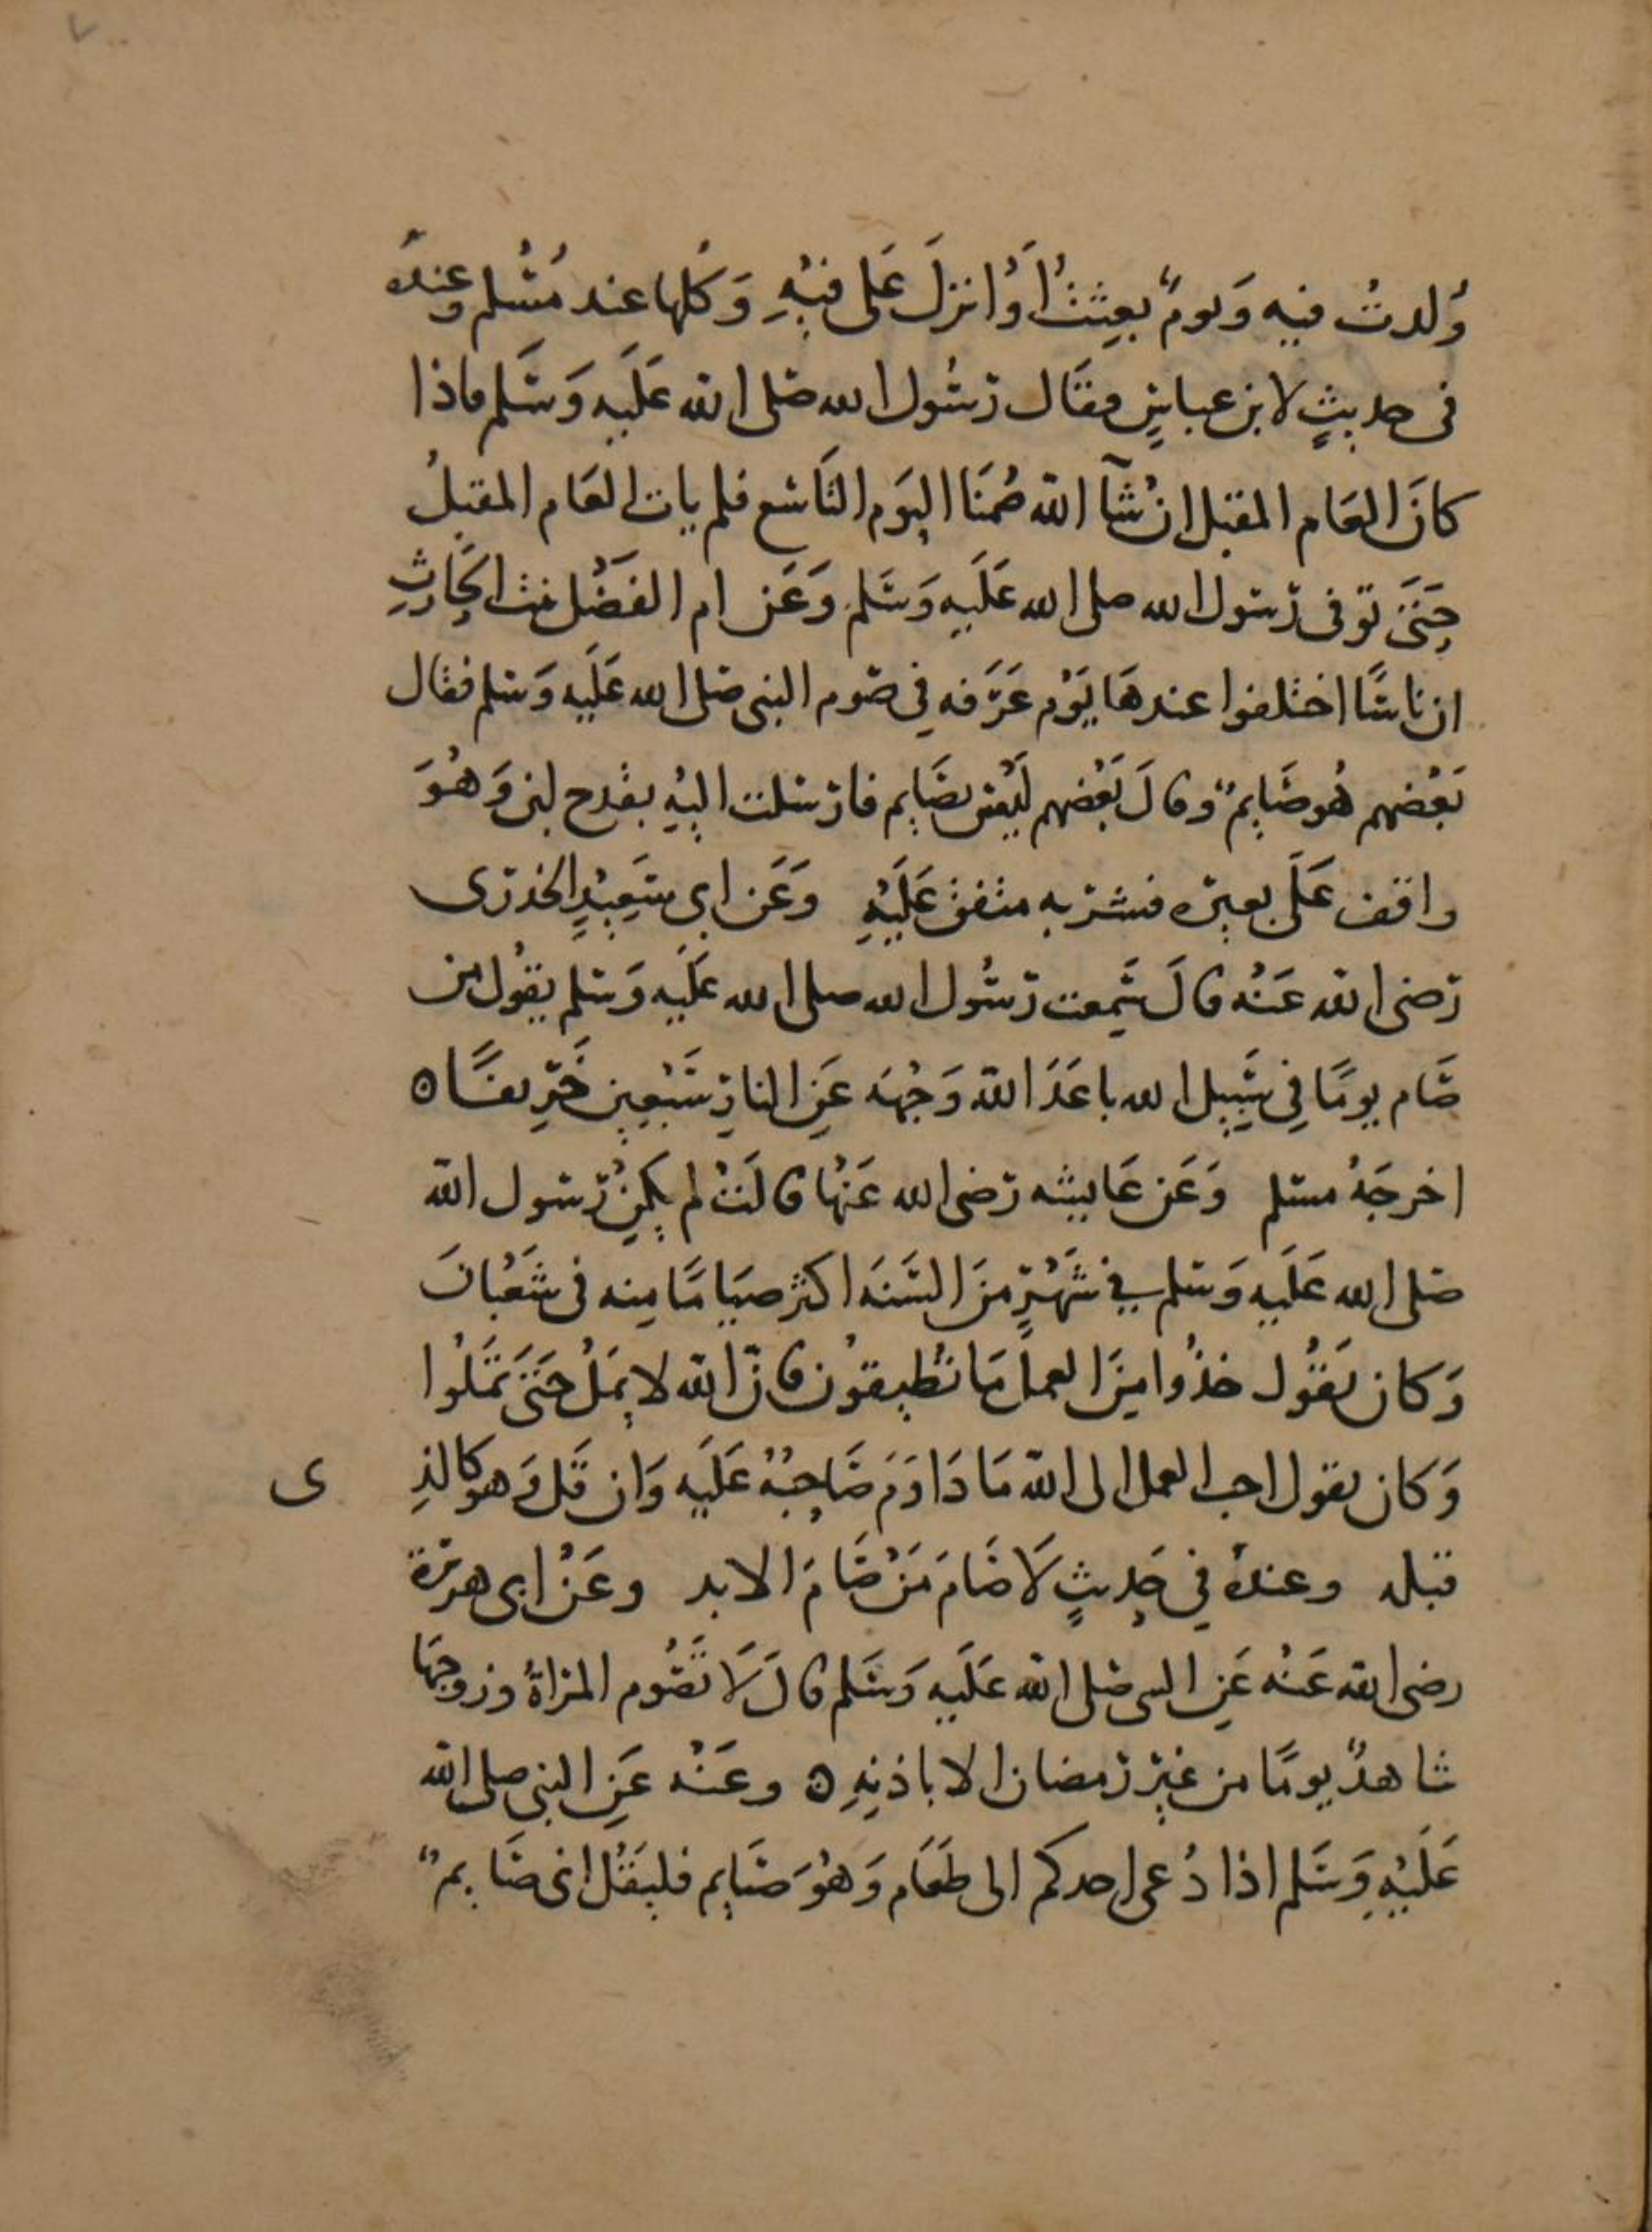 ٧
وُلدتُ فيه وَيومٌ بعِثتُ أوْ انزلَ عَلى فيْهِ وَكلها عند مُسْلم وعندَه
فى حديثٍ لابن عباسٍ فقَال رسُول الله صَلى الله عَلَيه وَسَلم فاذا
كانَ العَام المقبل انْ شآ الله صُمنَا اليَوم التَاسع فلم يات العَام المقبلُ
حَتىَ توفى رَسول الله صلى الله عَلَيهِ وَسَلم وَعَن ام الفَضْل بنت الحَارثِ
ان ناسًا اختلفوا عندهَا يَوْم عَرَفه فِي صَوم النبى صَلى الله عَلَيه وَسلم فقال
بَعْضهم هُو صَايمٌ وقالَ بَعْضهم لَيْسَ بصَايم فارسَلت اليْهِ بقدح لبن وَهُوَ
واقف عَلَى بعيره فشربه متفق عَلَيْهِ وَعَن ابى سَعِيْدٍ الخدرى
رَضى الله عَنْه قالَ سَمِعت رَسُول الله صلى الله عَلَيه وَسَلم يقوُل من
صَام يومًا فِي سَبِيل الله باعَدَ الله وَجْهَه عَنِ النارِ سَبْعِين خَرِيفًا ه
اخرجَهُ مسلم وَعَن عَايشه رَضى الله عَنْها قالَتْ لم يكنْ رَسول الله
صَلى الله عَلَيه وَسَلم في شَهْرٍ منَ السَنَه اكثر صيَامًا مِنه فى شَعْبانَ
وَكان يَقُول خذُوا مِنَ العمل مَا تُطيقوُن فانّ الله لا يمَلُ حَتىَ تمَلُوا
وَكان يقول احب العمل الى الله مَا دَاوَمَ صَاحِبُهُ عَلَيه وَان قَل وَهو كالذِ ى
قبله وعندهُ فِي حَدِيثٍ لَا صَامَ مَنْ صَامَ الابد وعَنْ ابى هريرة
رضى الله عَنْه عَنِ النبى صَلى الله عَلَيهِ وَسَلم قالَ لَا تَصُوم المراةُ وزوجهَا
شاهدٌ يومًا من غيْر رَمضان الا باذنِهِ ه وعَنْه عَنِ النبى صلى الله
عَلَيْهِ وَسَلم اذا دُعى احدكم الى طَعَام وَهوَ صَايم فليَقُل انى صَايمٌ